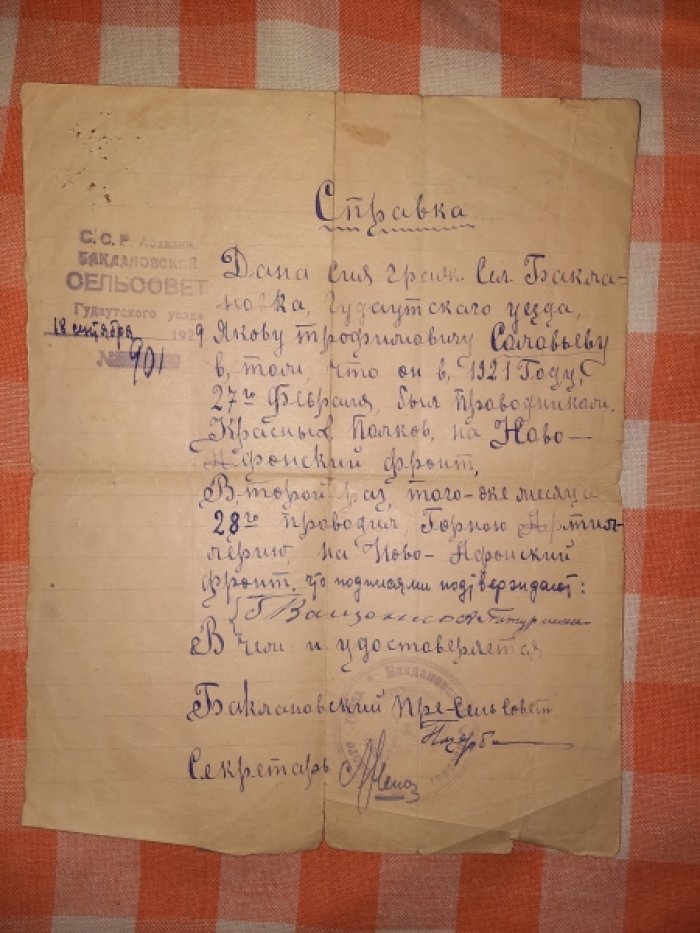 Справка
С. С. Р. Абхазия
БАКЛАНОВСКИЙ
СЕЛЬСОВЕТ
Гудаутского уезда
18 сентября 1929
№ 901
Дана сия гражд. Сел. Бакла-
новка, Гудаутского уезда,
Якову Трофимовичу Салавьеву
в, том, что он в, 1921 Году,
27го Февраля, был проводником,
Красных Полков, на Ново-
Афонский фронт,
Второй раз, того-же месяца
28го проводил, Горною Артил-
лерию, на Ново-Афонский
фронт, что подписями подтверждают:
В чем и удостоверяется
Баклановский Пре-Сельсовета
Секретарь